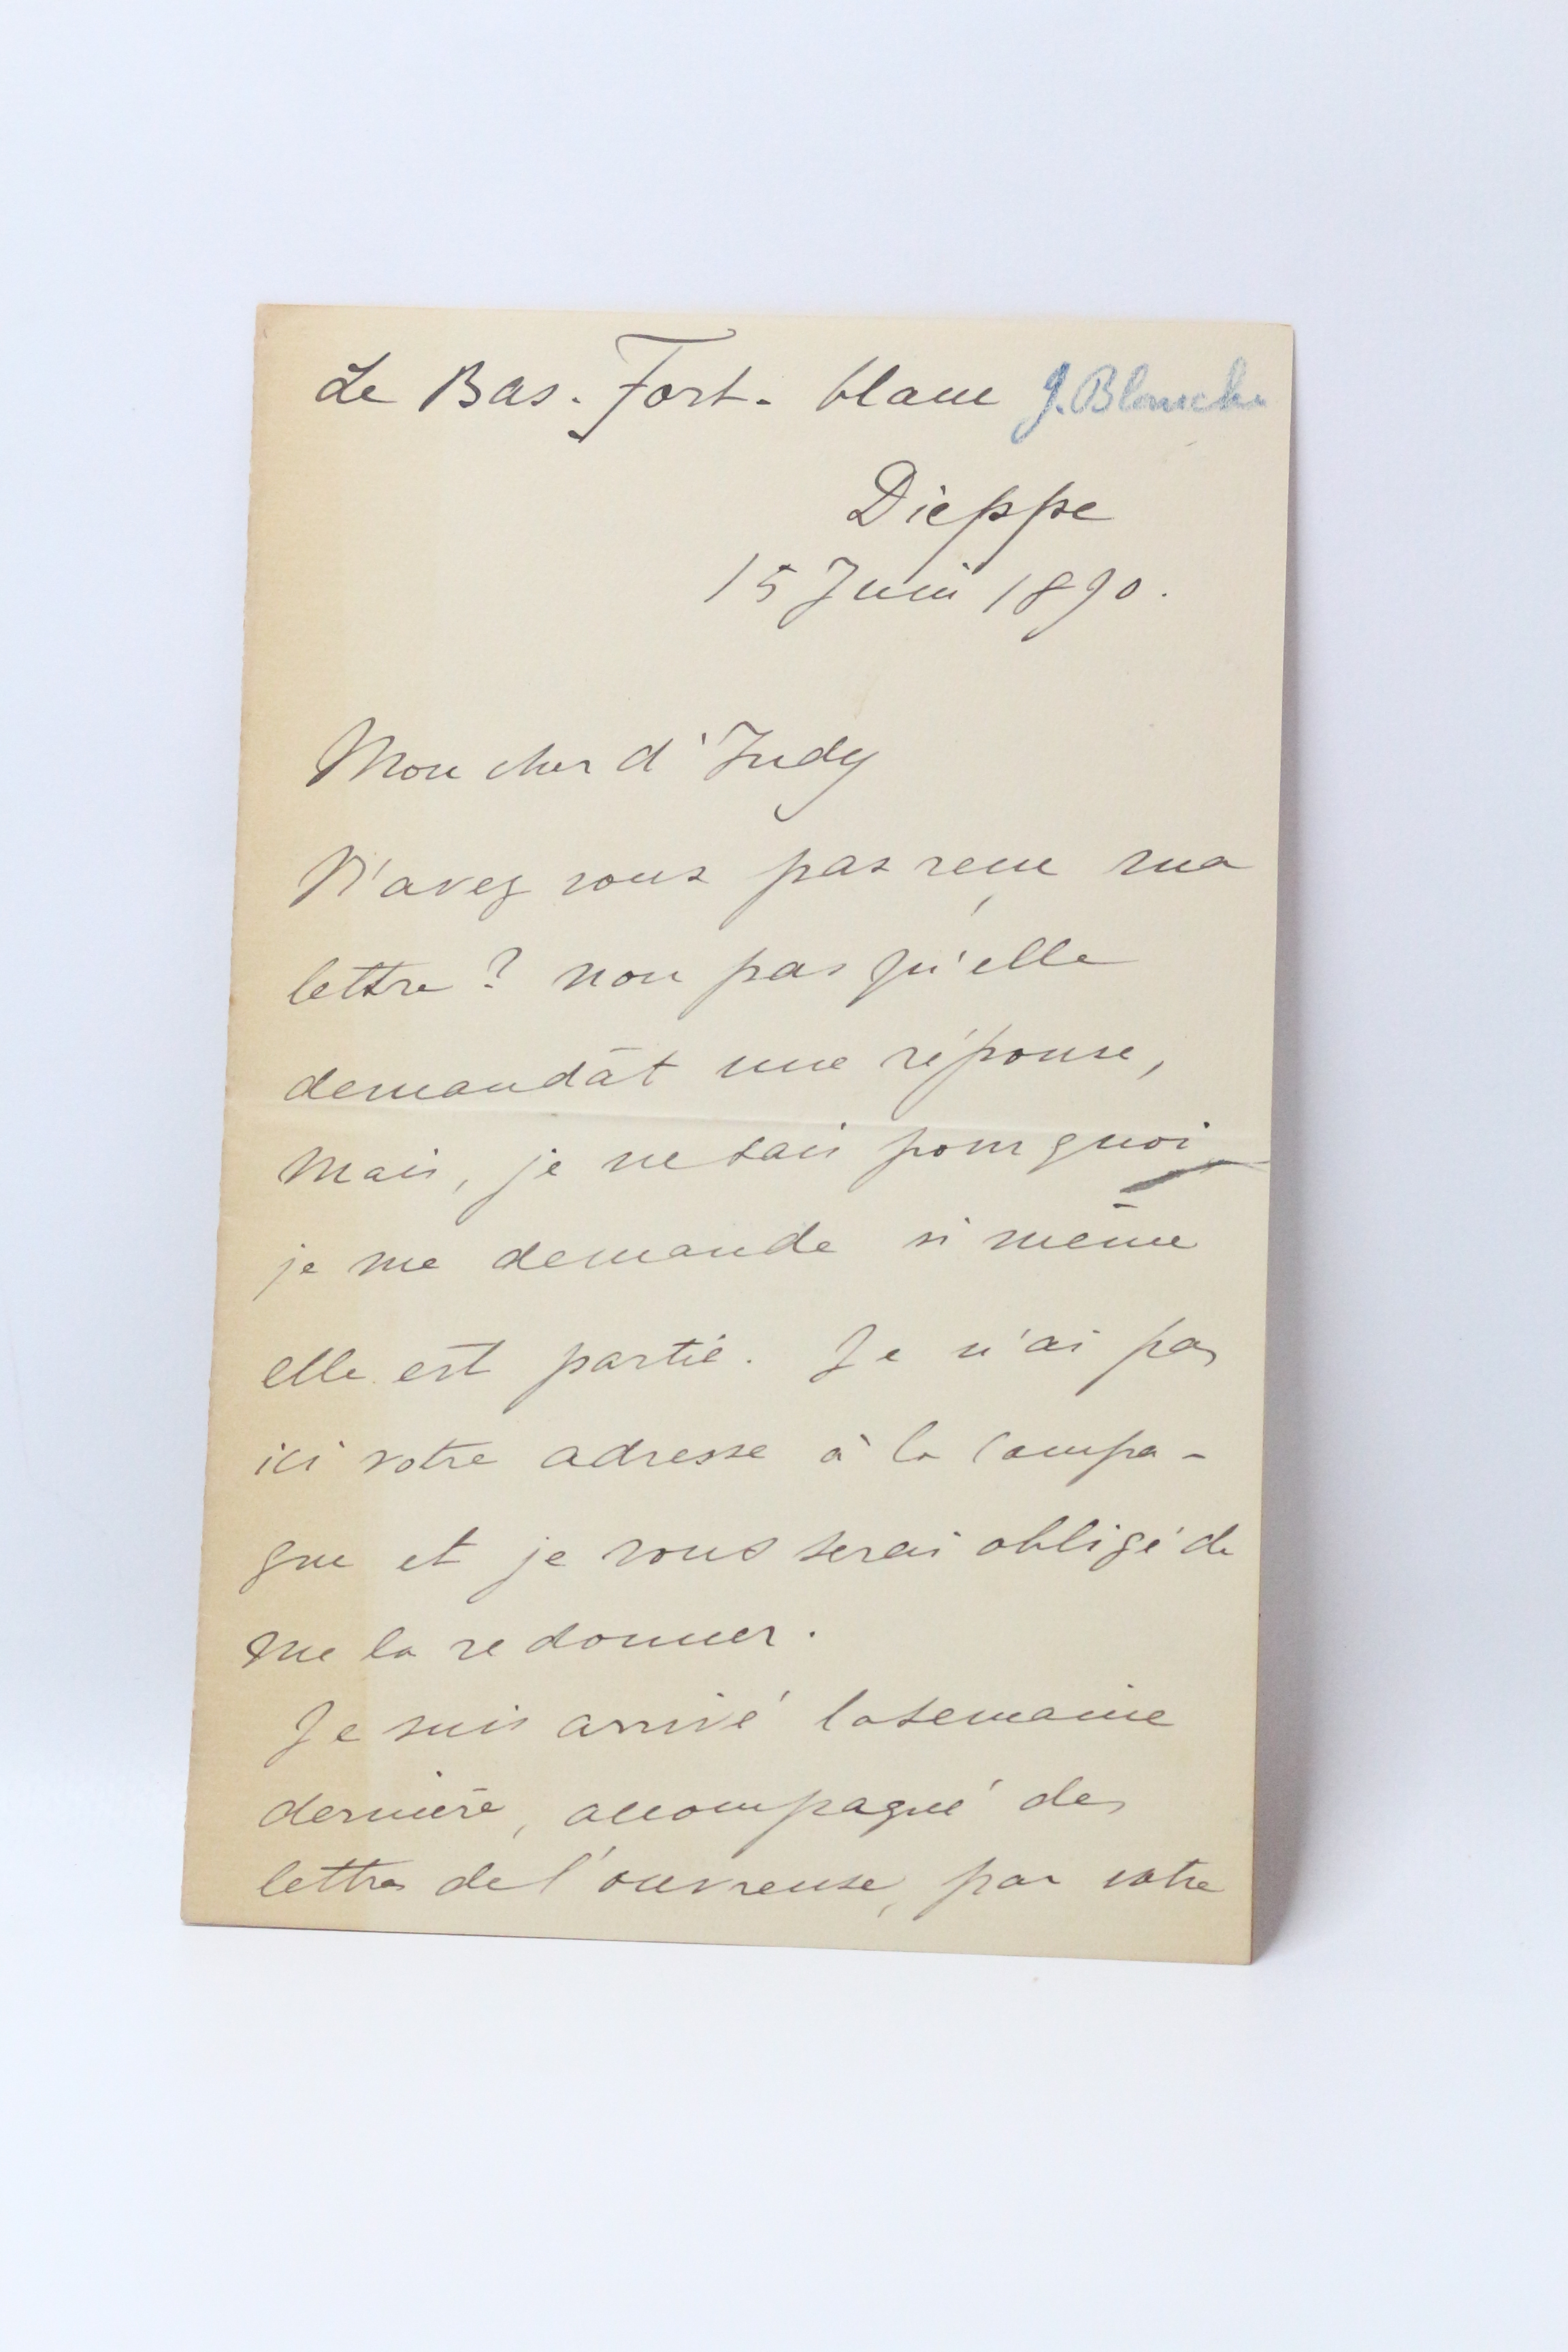 Le Bas-Fort-blanc J. Blanche
Dieppe
15 Juin 1890.
Mon cher d'Indy
N'avez vous pas reçu ma
lettre ? non pas qu'elle
demandât une réponse,
mais, je ne sais pourquoi
je me demande si même
elle est partie. Je n'ai pas
ici votre adresse à la campa-
gne et je vous serai obligé de
me la redonner.
Je suis arrivé la semaine
dernière, accompagné des
lettres de l'ouvreuse, par votre